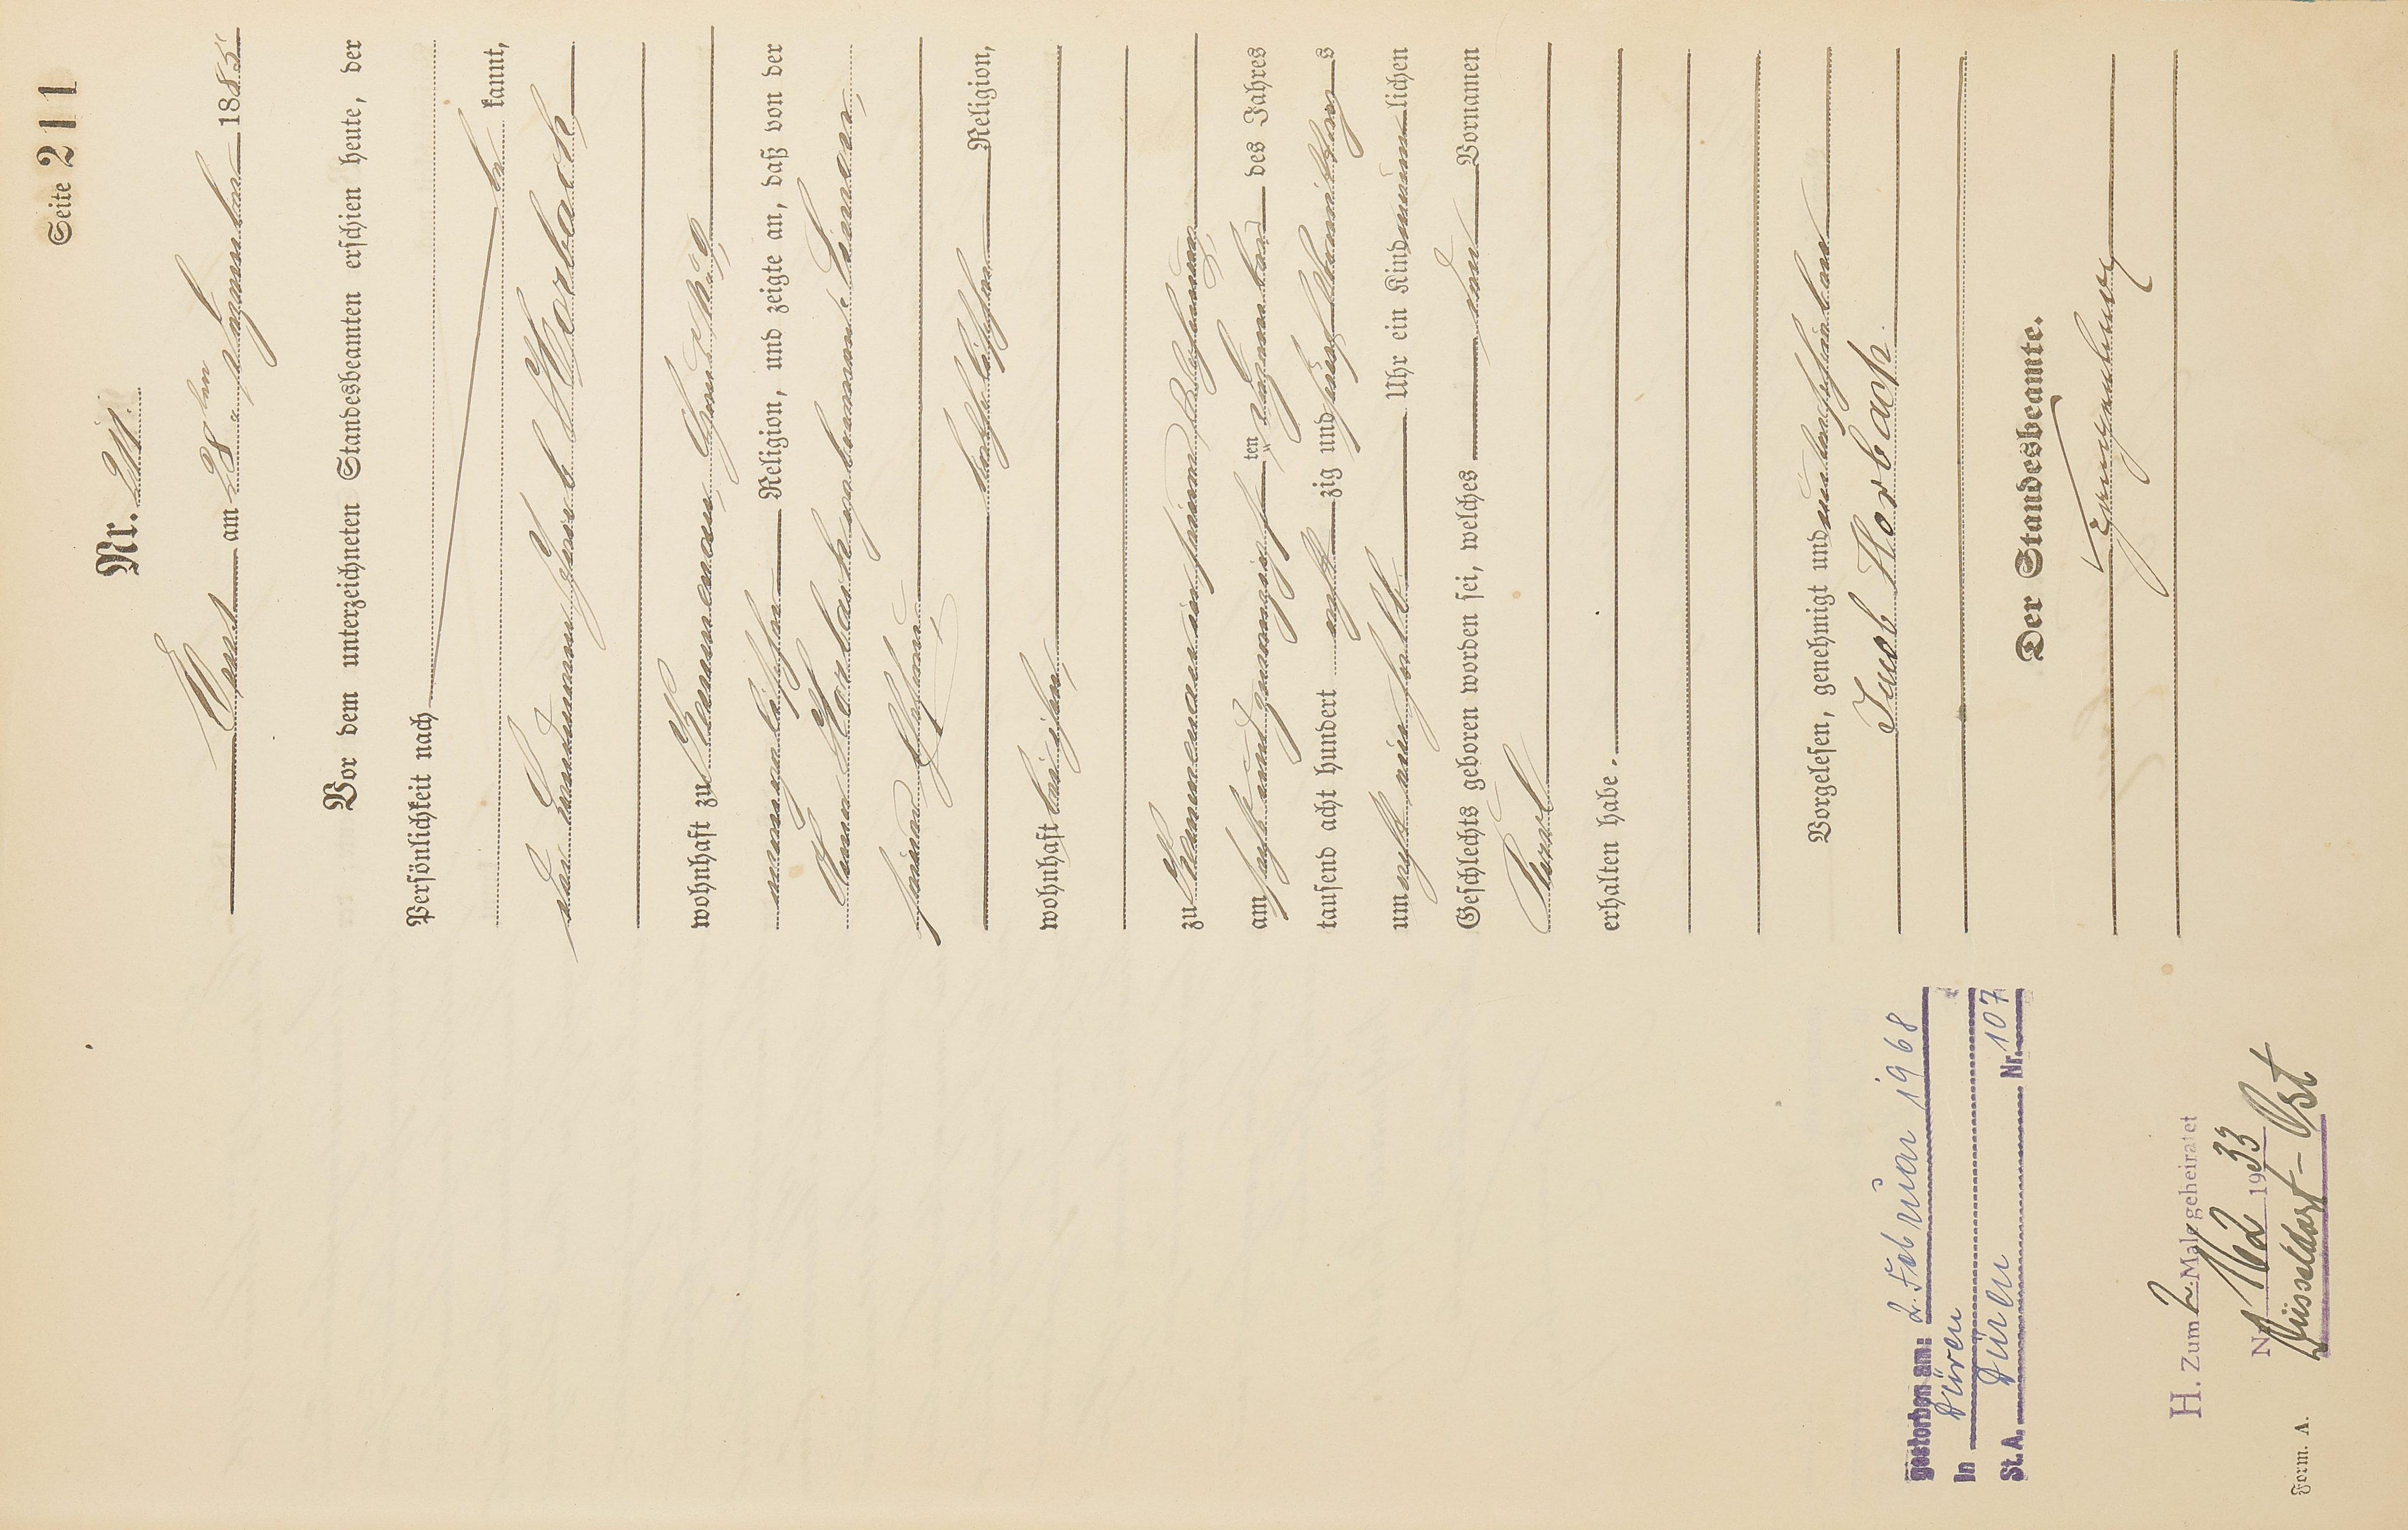 Seite 211
Nr. 211.
am 28ten September 1885
Vor dem unterzeichneten Standesbeamten erschien heute, der
Persönlichkeit nach
be kannt,
der Handelsmann Jacob Horbach
wohnhaft zu
evangelischer Religion, und zeigte an, daß von der
Anna Horbach geborenen
seiner Ehefrau
evangelischer Religion,
wohnhaft bei ihm,
zu in seiner Wohnung
am sechsundzwanzigsten ten September des Jahres
tausend acht hundert acht zig und fünf Vormittags
um acht einhalb Uhr ein Kind männ lichen
Geschlechts geboren worden sei, welches den Vornamen
Karl
erhalten habe.
Vorgelesen, genehmigt und unterschrieben
Jacob Horbach.
Der Standesbeamte.
gestorben am: 2. Februar 1968
In Düren
St. A. Düren Nr. 107
H. Zum 2. Male geheiratet
Nr. 162 1933
Düsseldorf-Ost
Form. A.